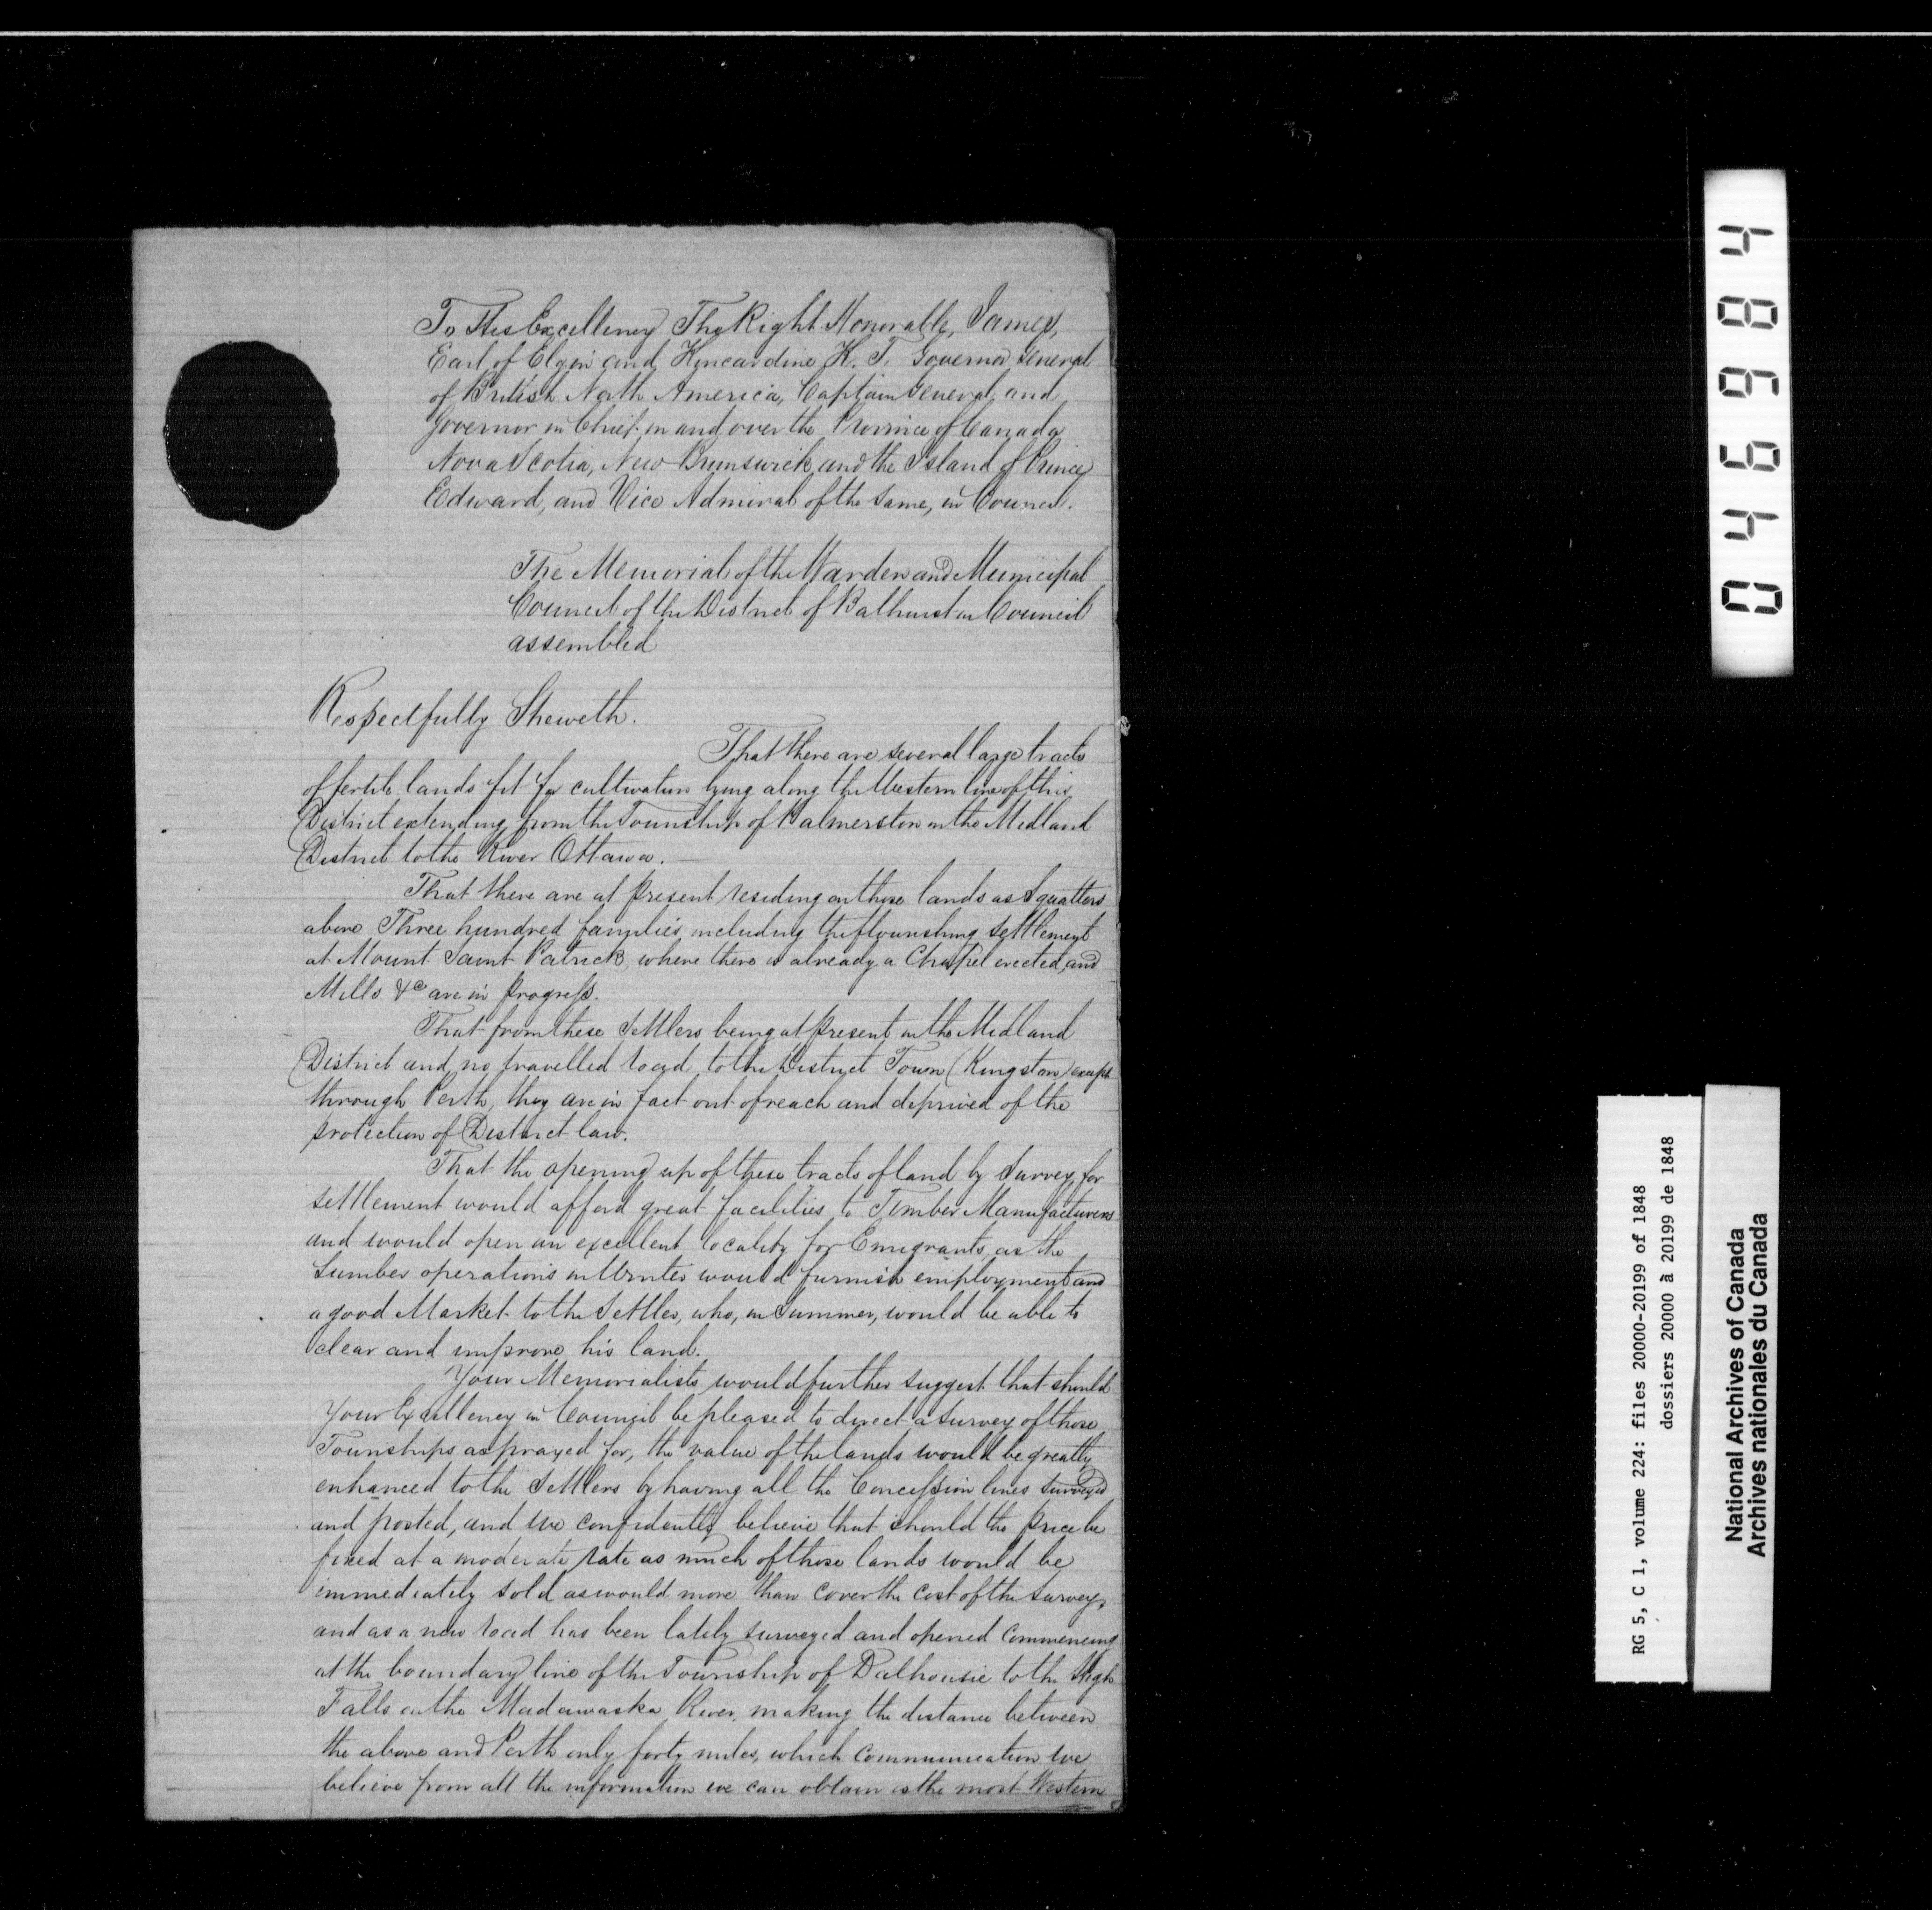 To His Excellency The Right Honorable, James,
Earl of Elgin and Kincardine K. T. Governor General
of British North America, Captain General, and
Governor in Chief in and over the Province of Canada
Nova Scotia, New Brunswick, and the Island of Prince
Edward, and Vice Admiral of the same, in Council.
The Memorial of the Warden and Municipal
Council of the District of Bathurst in Council
assembled
Respectfully Sheweth.
That there are several large tracts
of fertile lands fit for cultivation lying along the Western line of this
District extending from the Township of Palmerston in the Midland
District to the River Ottawa.
That there are at present residing on those lands as Squatters
above Three hundred families, including the flourishing settlement
at Mount Saint Patrick, where there is already a Chapel erected, and
Mills &c are in progress.
That from these Settlers being at present in the Midland
District and no travelled road to the District Town (Kingston) except
through Perth, they are in fact out of reach and deprived of the
protection of District law.
That the opening up of these tracts of land by Survey, for
settlement would afford great facilities to Timber Manufacturers
and would open an excellent locality for Emigrants, as the
Lumber operations in Winter would furnish employment and
a good Market to the Settler, who, in Summer, would be able to
clear and improve his land.
Your Memorialists would further suggest that should
Your Excellency in Council be pleased to direct a Survey of those
Townships as prayed for, the value of the lands would be greatly
enhanced to the Settlers by having all the Concession lines surveyed
and posted, and we confidently believe that should the price be
fixed at a moderate rate as much of those lands would be
immediately sold as would more than cover the cost of the survey,
and as a new road has been lately surveyed and opened commencing
at the boundary line of the Township of Dalhousie to the High
Falls on the Madawaska River, making the distance between
the above and Perth only forty miles, which communication we
believe from all the information we can obtain is the most Western
046984
RG 5, C 1, volume 224: files 20000-20199 of 1848
dossiers 20000 à 20199 de 1848
National Archives of Canada
Archives nationales du Canada